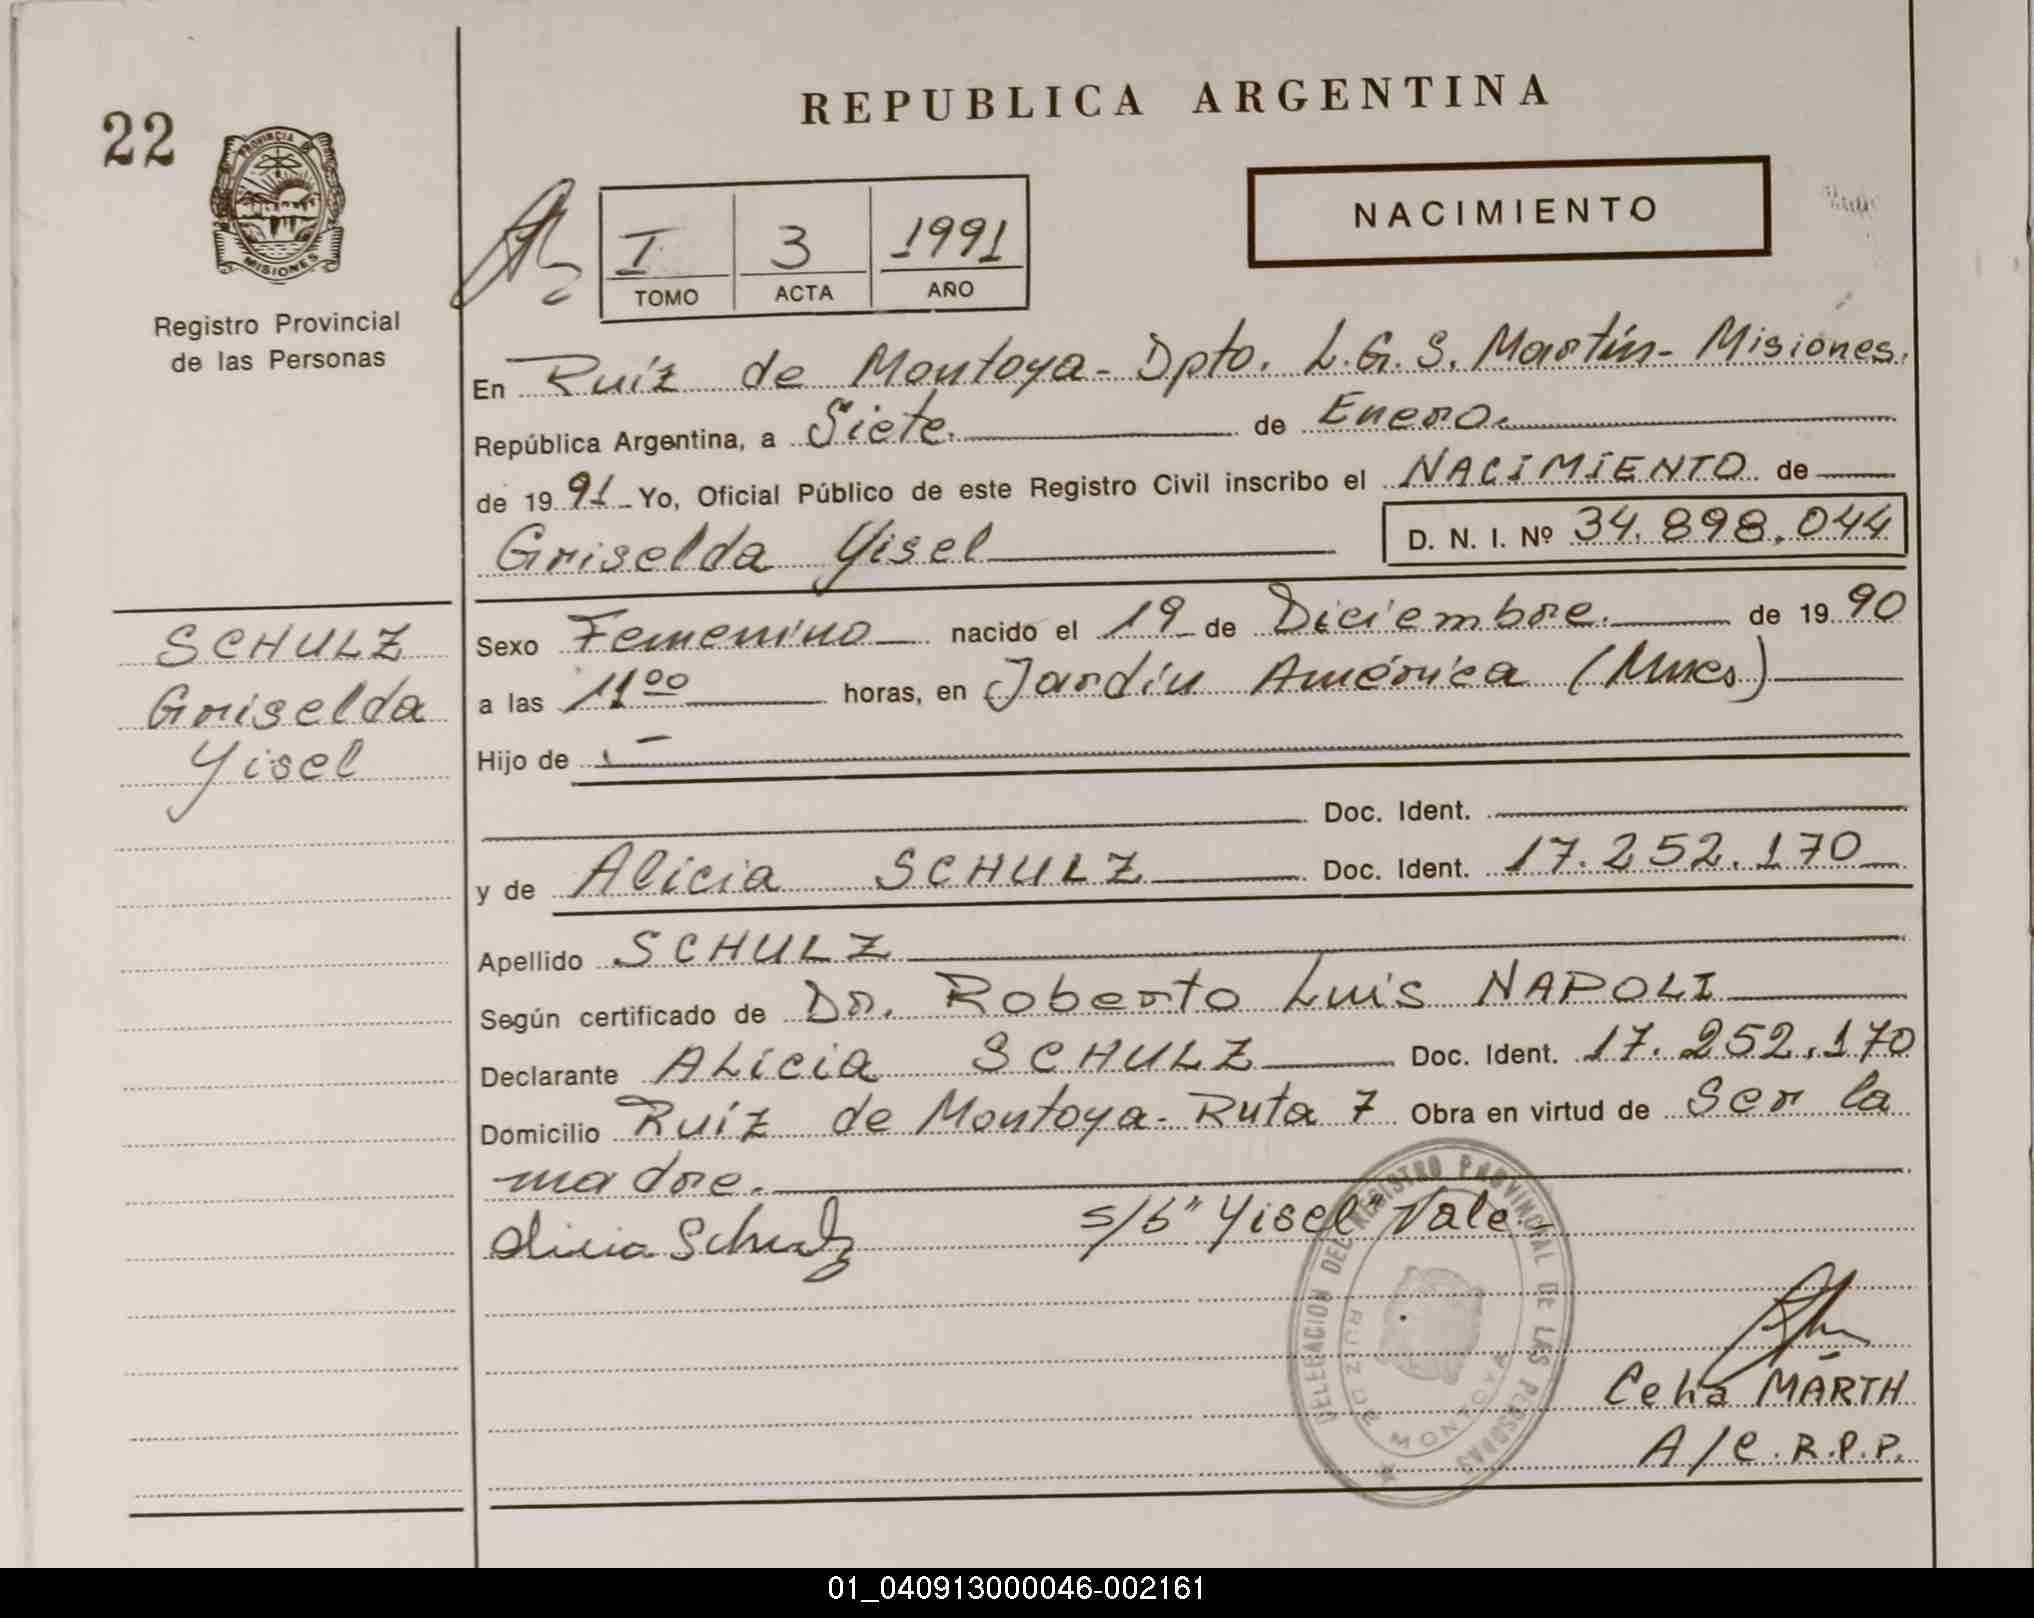 REPUBLICA ARGENTINA
22
PROVINCIA DE
MISIONES
Registro Provincial
de las Personas
I 3 1991
TOMO ACTA AÑO
NACIMIENTO
En Ruíz de Montoya - Dpto. L.G.S. Martín - Misiones.
República Argentina, a Siete. de Enero.
de 1991 Yo, Oficial Público de este Registro Civil inscribo el NACIMIENTO de
Griselda Yisel D. N. I. Nº 34.898.044
SCHULZ
Griselda
Yisel
Sexo Femenino nacido el 19 de Diciembre. de 1990
a las 11⁰⁰ horas, en Jardín América (Mnes)
Hijo de -
Doc. Ident.
y de Alicia SCHULZ Doc. Ident. 17.252.170
Apellido SCHULZ
Según certificado de Dr. Roberto Luis NAPOLI
Declarante ALicia SCHULZ Doc. Ident. 17.252.170
Domicilio Ruíz de Montoya - Ruta 7 Obra en virtud de Ser la
madre.
Alicia Schulz s/b "Yisel" Vale.-
DELEGACION DEL REGISTRO PROVINCIAL DE LAS PERSONAS
RUIZ DE MONTOYA
Celia MARTH
A/C. R.P.P.
01_040913000046-002161